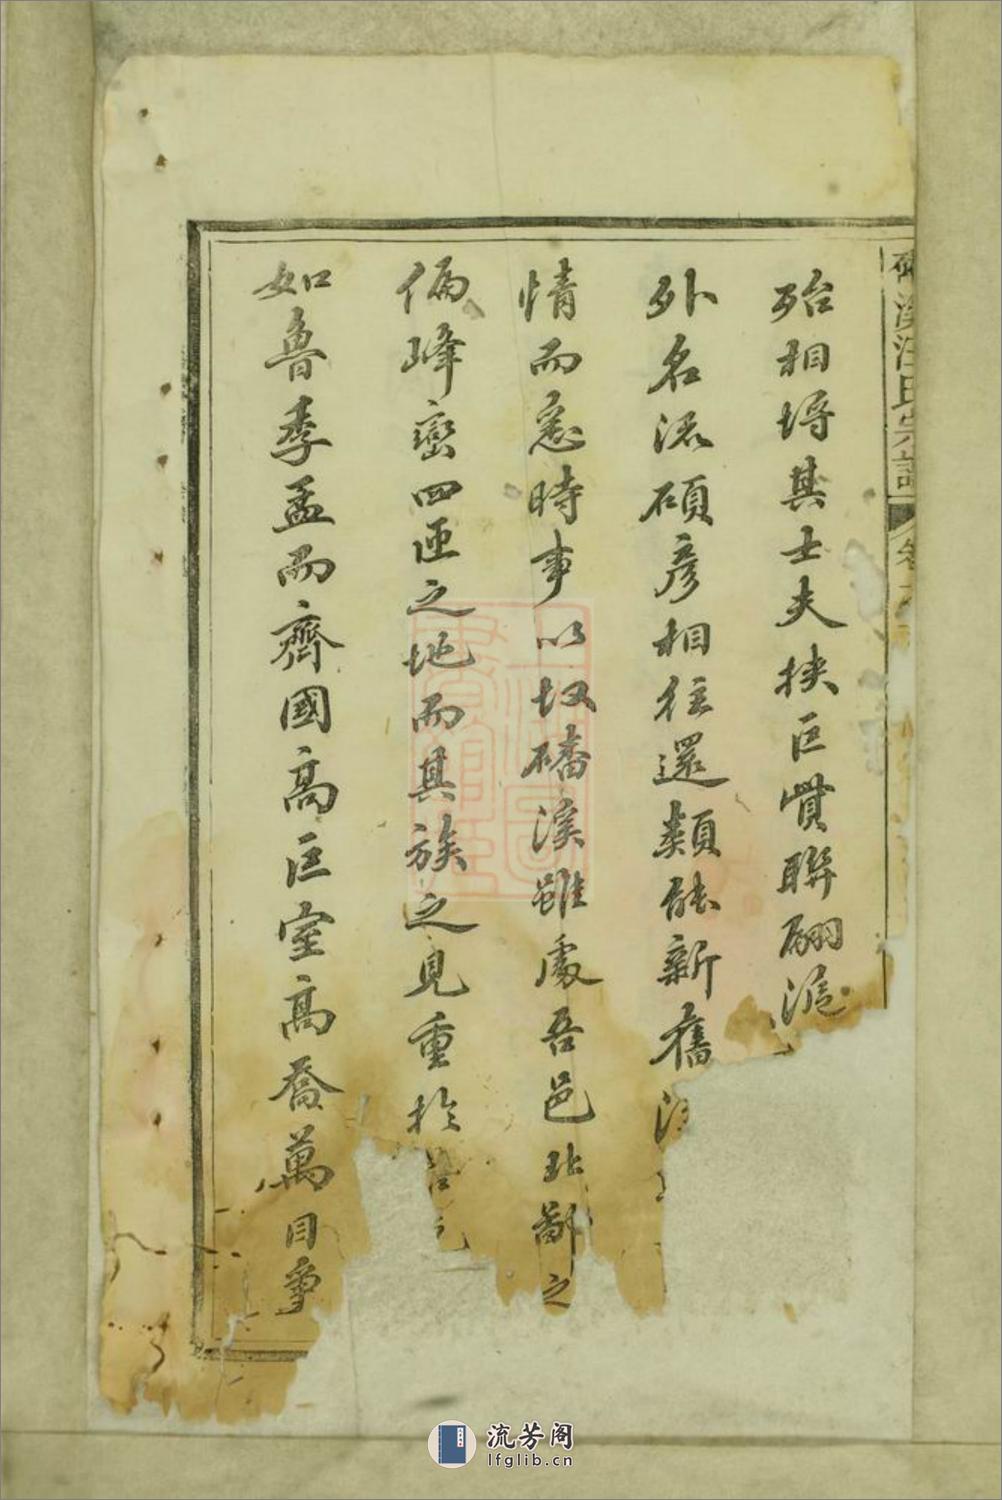 溪汪氏宗譜 卷之
殆相埒其士夫挾巨貲聯翩滬
外名流碩彥相往還類能新舊
情而悉時事以故磻溪雖處吾邑北鄙之
偏峰巒四匝之地而其族之見重於
如魯季孟而齊國高巨室高喬萬目爭
流芳阁
lfglib.cn